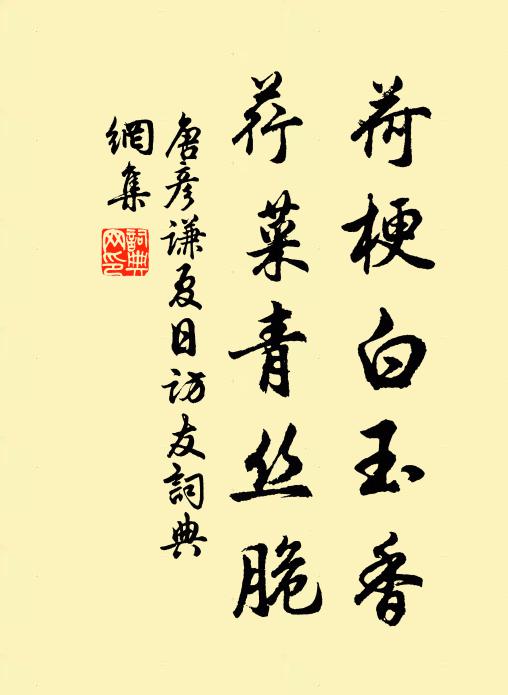 荷梗白玉香
荇菜青丝脆
唐彦谦夏日访友詞典
網集
詞典
网印